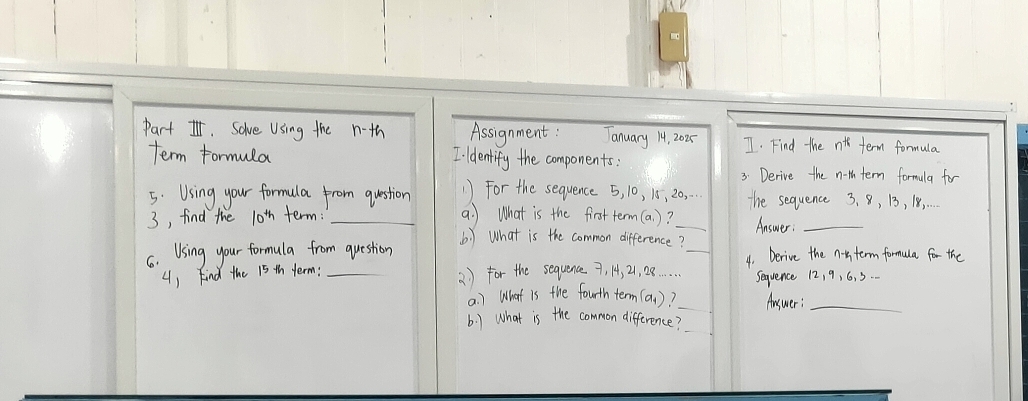 Part III. Solve Using the n-th
Term Formula
5. Using your formula from question
3, find the 10th term: ________
6. Using your formula from question
4, Find the 15 th term: ________
Assignment: January 14, 2025
I. Identify the components:
1) For the sequence 5, 10, 15, 20,....
a.) What is the first term (a1)? ____
b.) What is the common difference? ____
2.) For the sequence 7, 14, 21, 28......
a.) What is the fourth term (a4)? ____
b.) What is the common difference? ____
II. Find the nth term formula
3. Derive the n-th term formula for
the sequence 3, 8, 13, 18,....
Answer: ________
4. Derive the n-th term formula for the
sequence 12, 9, 6, 3...
Answer: ________